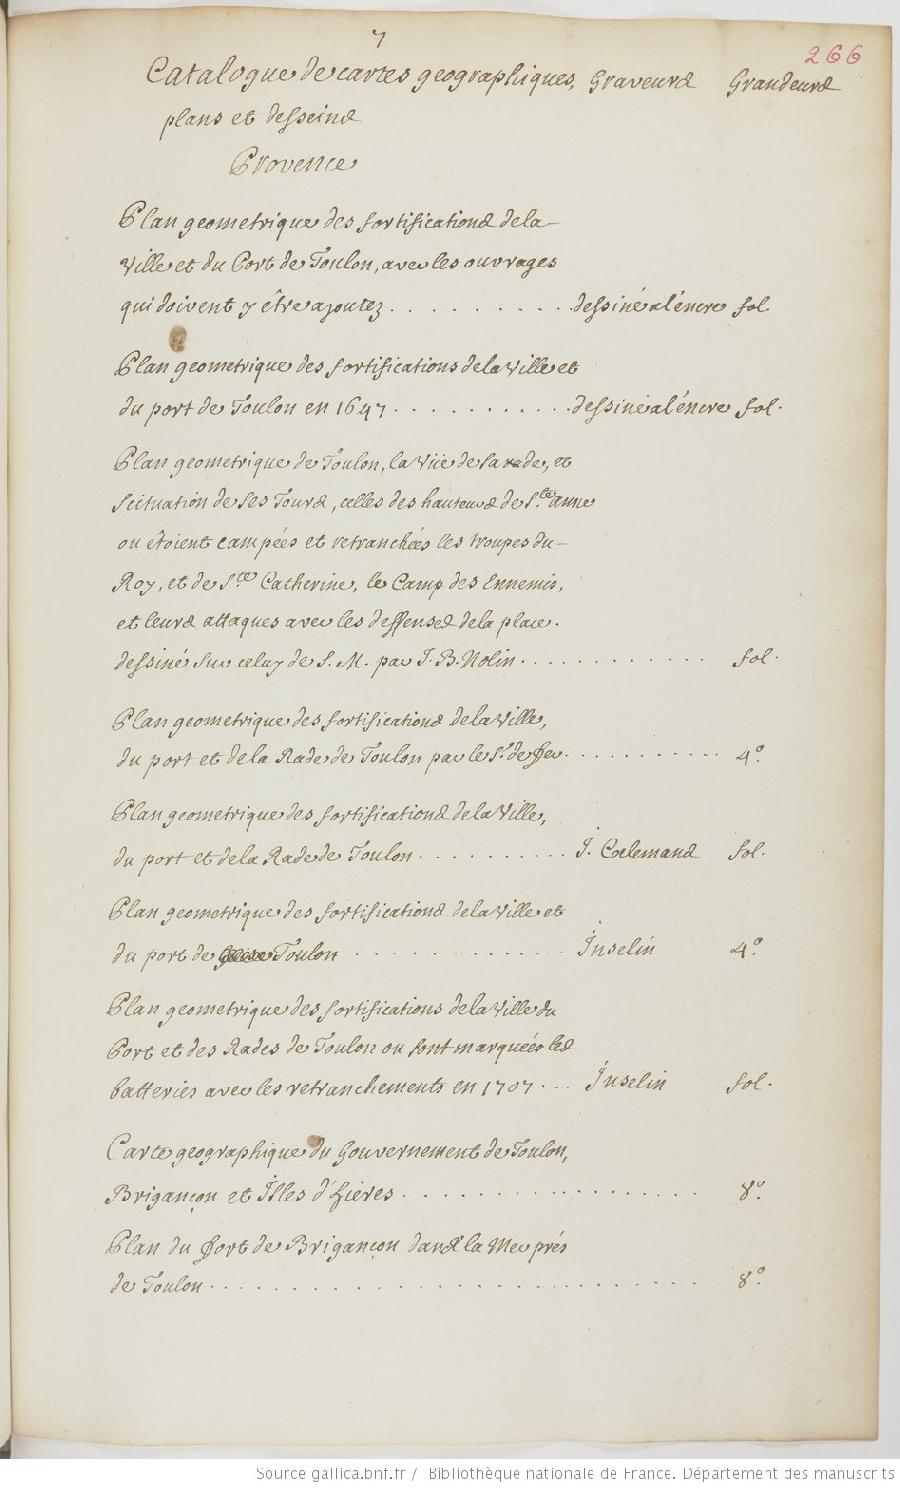 7
266
Catalogue de cartes geographiques, Graveurs Grandeurs
plans et desseins
Provence
Plan geometrique des fortifications de la
Ville et du Port de Toulon, avec les ouvrages
qui doivent y être ajoutez .......... dessiné a l'encre fol.
Plan geometrique des fortifications de la Ville et
du port de Toulon en 1647 .......... dessiné a l'encre fol.
Plan geometrique de Toulon, la Vüe de sa rade, et
scituation de ses Tours, celles des hauteurs de Ste. anne
ou étoient campées et retranchées les troupes du
Roy, et de Ste Catherine, le Camp des Ennemis,
et leurs attaques avec les deffenses de la place.
dessiné sur celuy de S. M. par J. B. Nolin .......... fol.
Plan geometrique des fortifications de la Ville,
du port et de la Rade de Toulon par le Sr. de Fer .......... 4.º
Plan geometrique des fortifications de la Ville,
du port et de la Rade de Toulon .......... J. Coelemans fol.
Plan geometrique des fortifications de la Ville et
du port de Toulon .......... Inselin 4.º
Plan geometrique des fortifications de la Ville du
Port et des Rades de Toulon ou sont marquées les
batteries avec les retranchements en 1707 ... Inselin fol.
Carte geographique du Gouvernement de Toulon,
Brigançon et Isles d'hieres .......... 8.º
Plan du fort de Brigançon dans la Mer prés
de Toulon .......... 8.º
Source gallica.bnf.fr / Bibliothèque nationale de France. Département des manuscrits